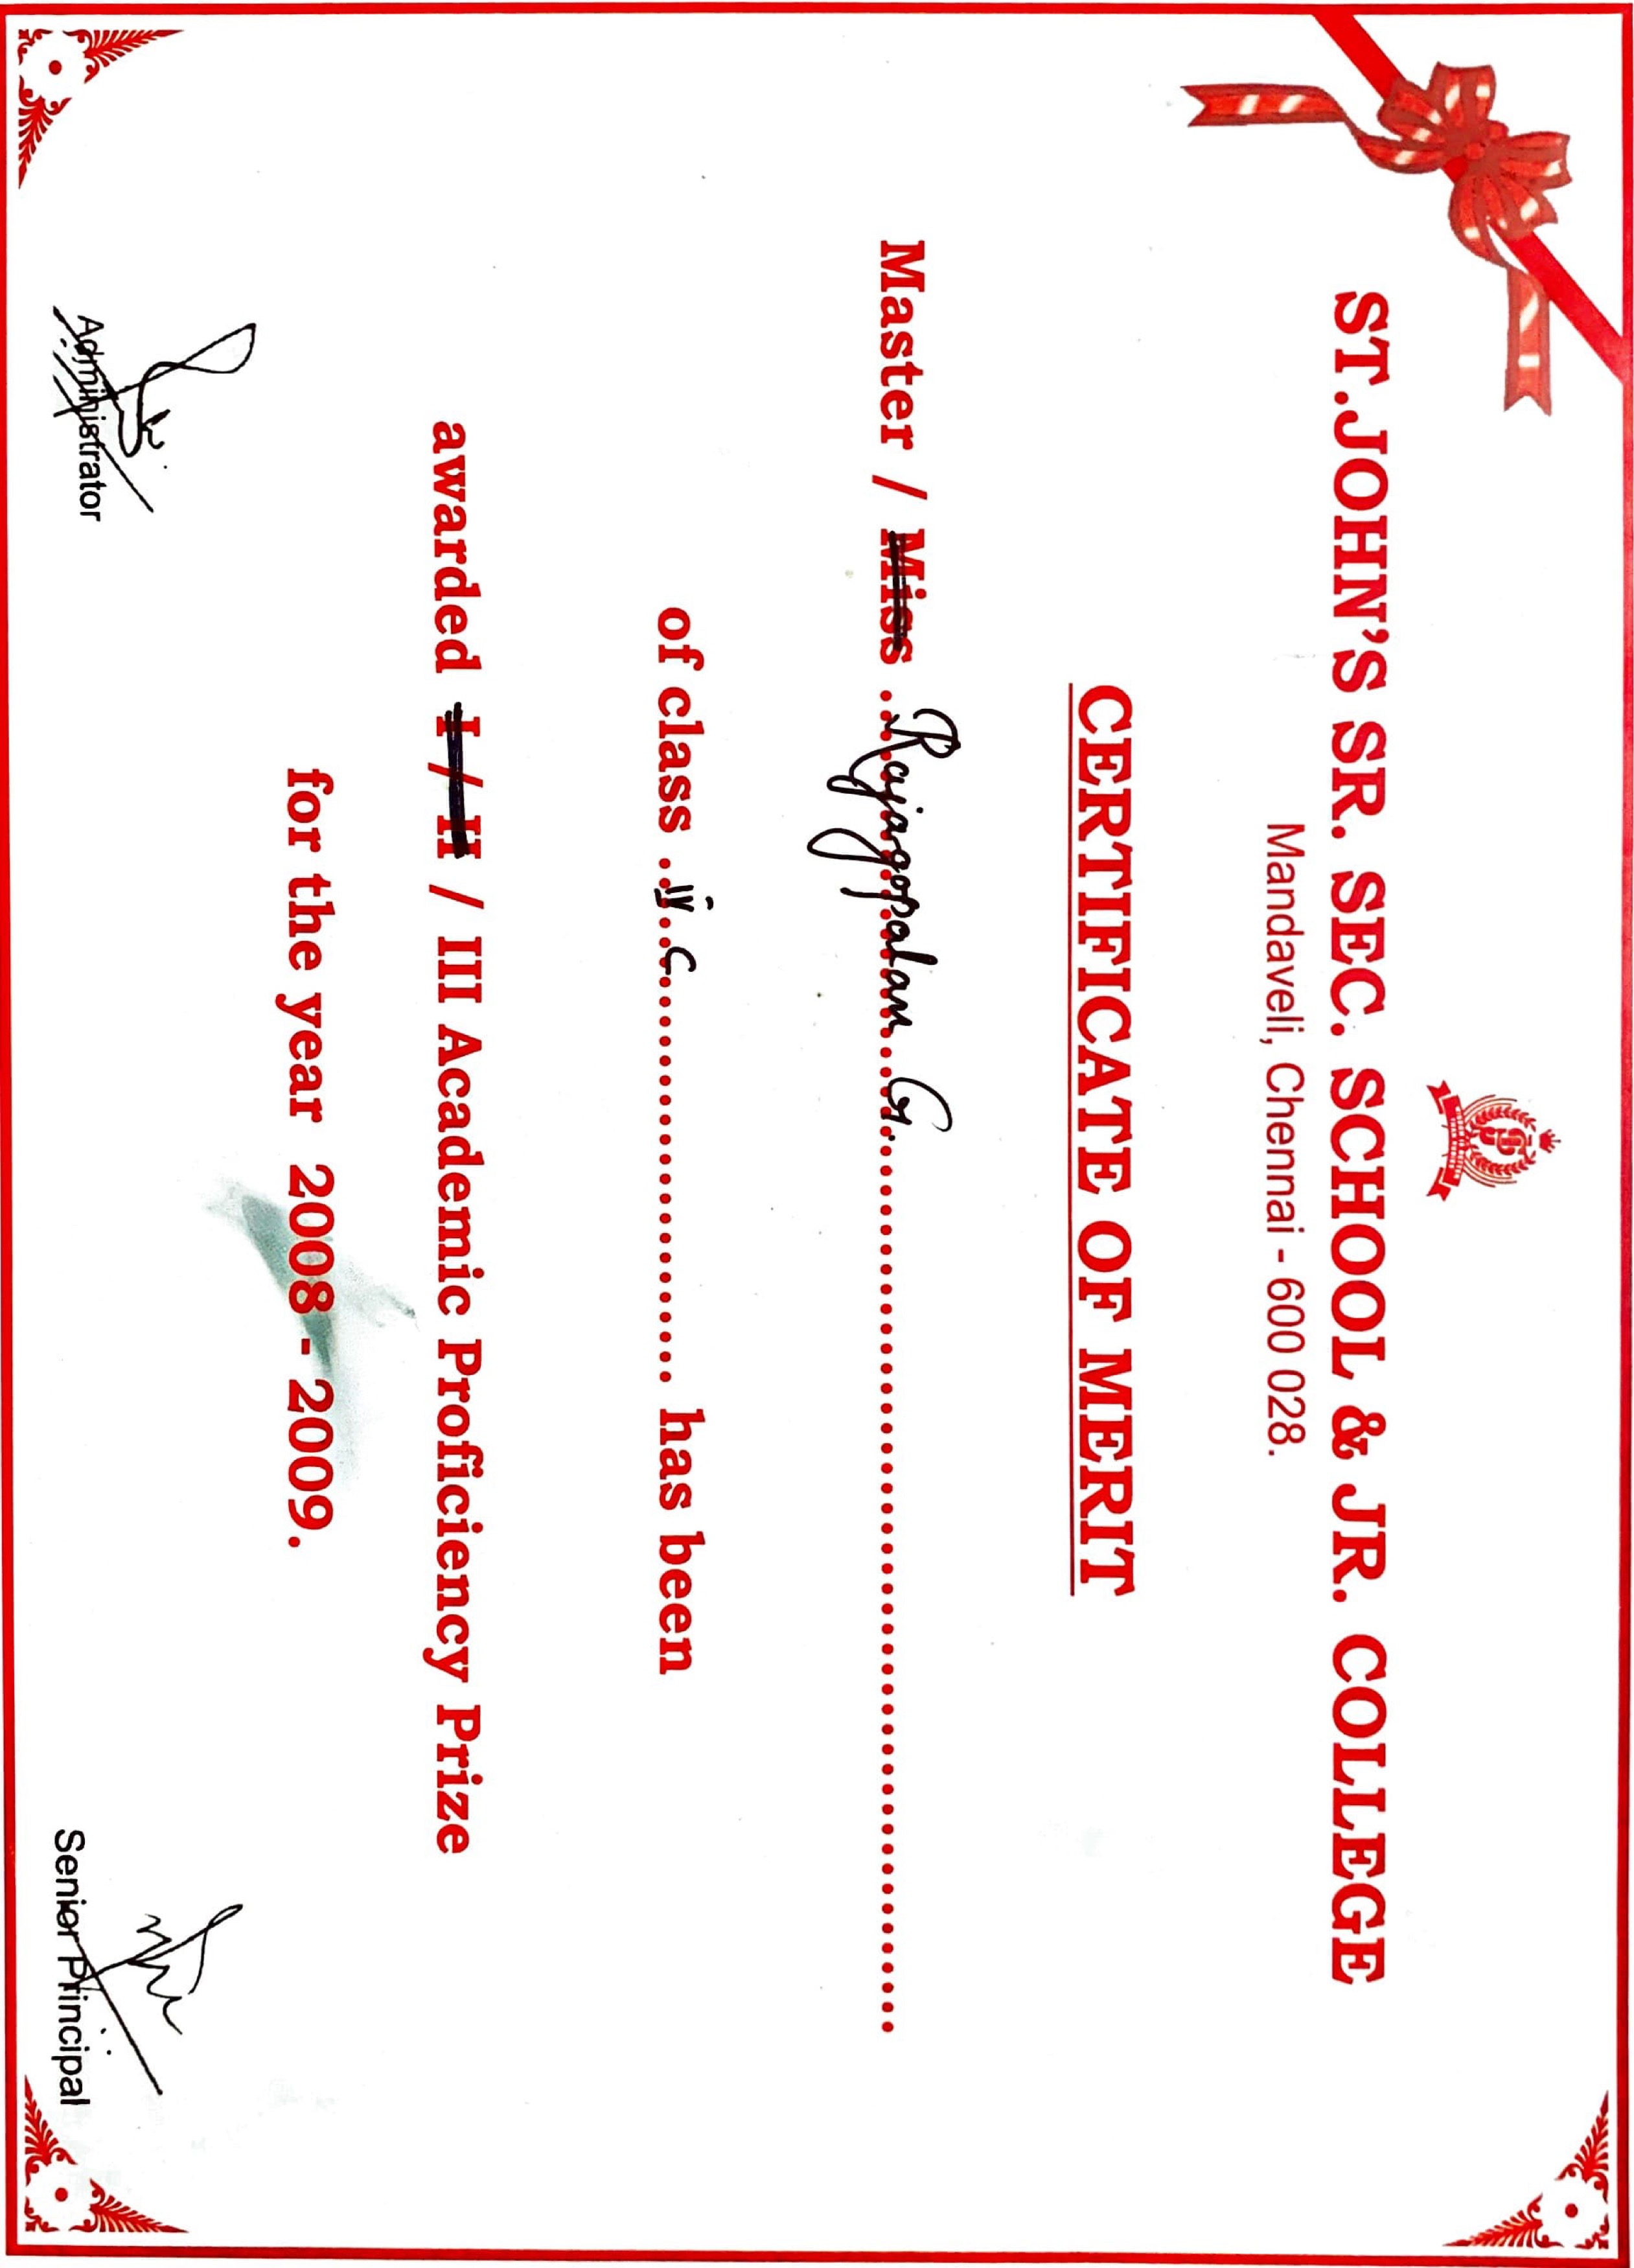 WISDOM IS BETTER
THAN RUBIES
ST.JOHN'S SR. SEC. SCHOOL & JR. COLLEGE
Mandaveli, Chennai - 600 028.
CERTIFICATE OF MERIT
Master / Miss Rajagopalan G.
of class IV C has been
awarded I / II / III Academic Proficiency Prize
for the year 2008 - 2009.
Administrator
Senior Principal